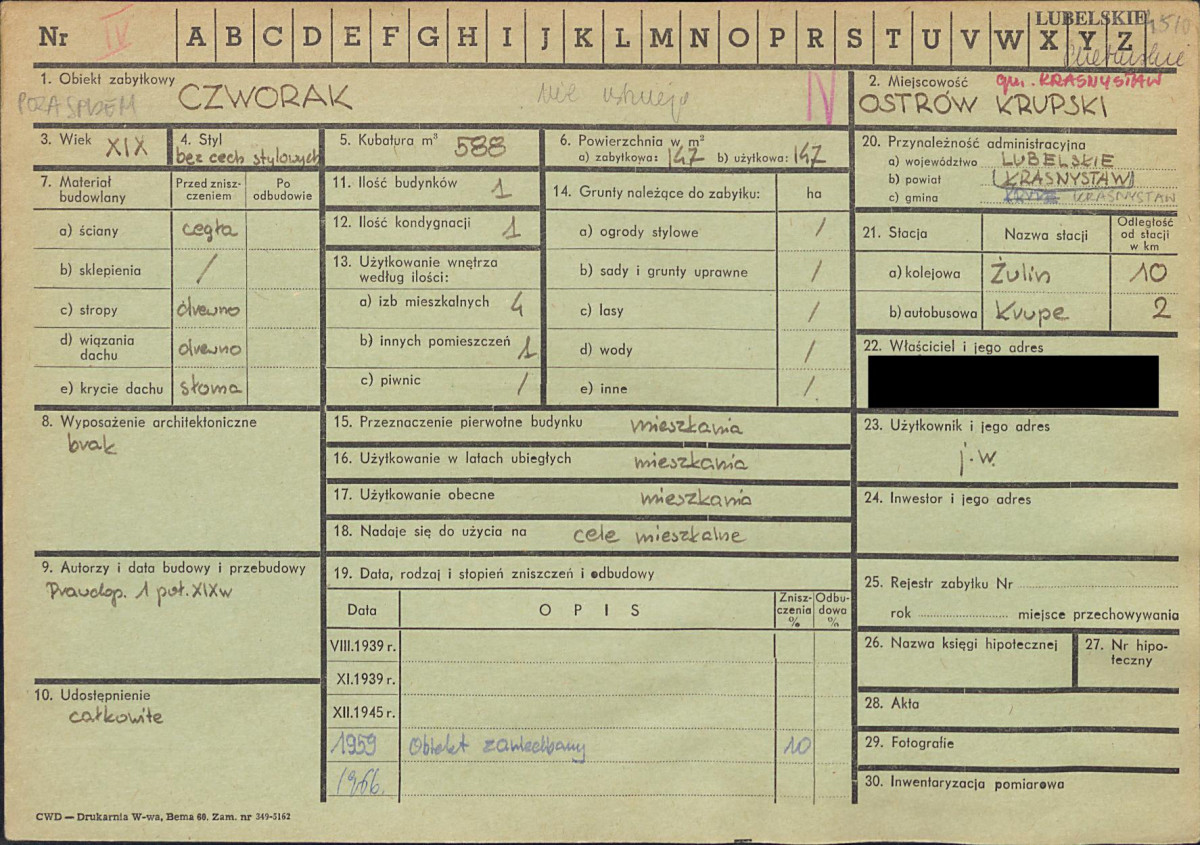 Nr IV A B C D E F G H I J K L M N O P R S T U V W X Y Z
LUBELSKIE
1. Obiekt zabytkowy
POZA SPISEM
CZWORAK
nie istnieje
N
2. Miejscowość gm. KRASNYSTAW
OSTRÓW KRUPSKI
3. Wiek XIX
4. Styl
bez cech stylowych
5. Kubatura m³ 588
6. Powierzchnia w m²
a) zabytkowa: 147 b) użytkowa: 147
20. Przynależność administracyjna
a) województwo LUBELSKIE
b) powiat (KRASNYSTAW)
c) gmina KRUPE KRASNYSTAW
7. Materiał budowlany
Przed zniszczeniem
Po odbudowie
a) ściany cegła
b) sklepienia /
c) stropy drewno
d) wiązania dachu drewno
e) krycie dachu słoma
11. Ilość budynków 1
12. Ilość kondygnacji 1
13. Użytkowanie wnętrza
według ilości:
a) izb mieszkalnych 4
b) innych pomieszczeń 1
c) piwnic /
14. Grunty należące do zabytku: ha
a) ogrody stylowe /
b) sady i grunty uprawne /
c) lasy /
d) wody /
e) inne /
21. Stacja
Nazwa stacji
Odległość
od stacji
w km
a) kolejowa Żulin 10
b) autobusowa Krupe 2
22. Właściciel i jego adres
8. Wyposażenie architektoniczne
brak
15. Przeznaczenie pierwotne budynku mieszkania
16. Użytkowanie w latach ubiegłych mieszkania
17. Użytkowanie obecne mieszkania
18. Nadaje się do użycia na cele mieszkalne
23. Użytkownik i jego adres
j.w.
24. Inwestor i jego adres
9. Autorzy i data budowy i przebudowy
Prawdop. 1 poł. XIXw
10. Udostępnienie
całkowite
19. Data, rodzaj i stopień zniszczeń i odbudowy
Data
OPIS
Zniszczenia %
Odbudowa %
VIII.1939 r.
XI.1939 r.
XII.1945 r.
1959 Obiekt zaniedbany 10
1966.
25. Rejestr zabytku Nr
rok miejsce przechowywania
26. Nazwa księgi hipotecznej
27. Nr hipoteczny
28. Akta
29. Fotografie
30. Inwentaryzacja pomiarowa
CWD — Drukarnia W-wa, Bema 60. Zam. nr 349-5162